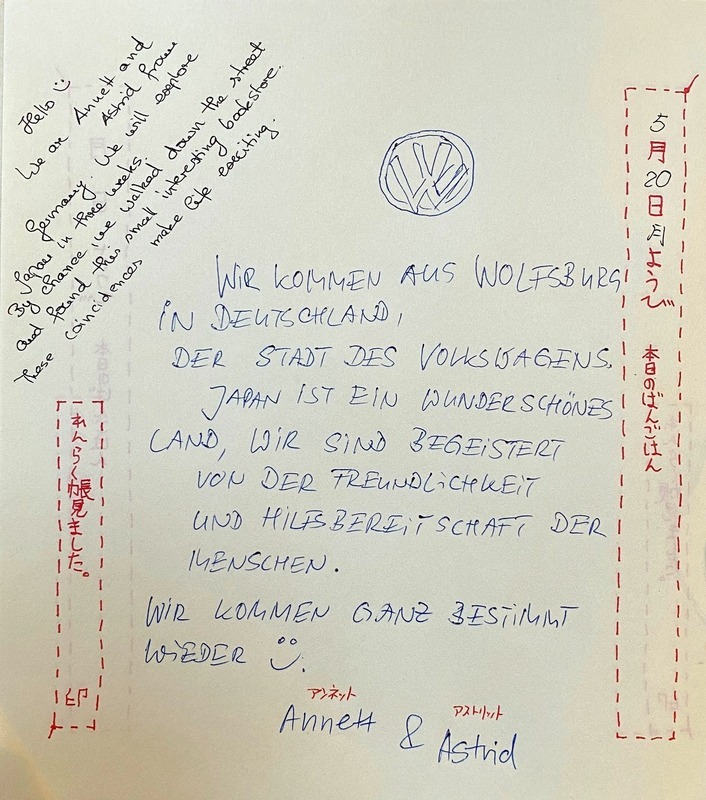 Hello
We are Annett and
Astrid from
Germany. We will explore
Japan in three weeks.
By chance we walked down the street
and found this small interesting bookstore.
These coincidences make life exciting.
VW
WIR KOMMEN AUS WOLFSBURG
IN DEUTSCHLAND,
DER STADT DES VOLKSWAGENS.
JAPAN IST EIN WUNDERSCHÖNES
LAND, WIR SIND BEGEISTERT
VON DER FREUNDLICHKEIT
UND HILFSBEREITSCHAFT DER
MENSCHEN.
WIR KOMMEN GANZ BESTIMMT
WIEDER
アンネット
アストリット
Annett & Astrid
5月20日月ようび 本日のばんごはん
れんらく帳見ました。 印